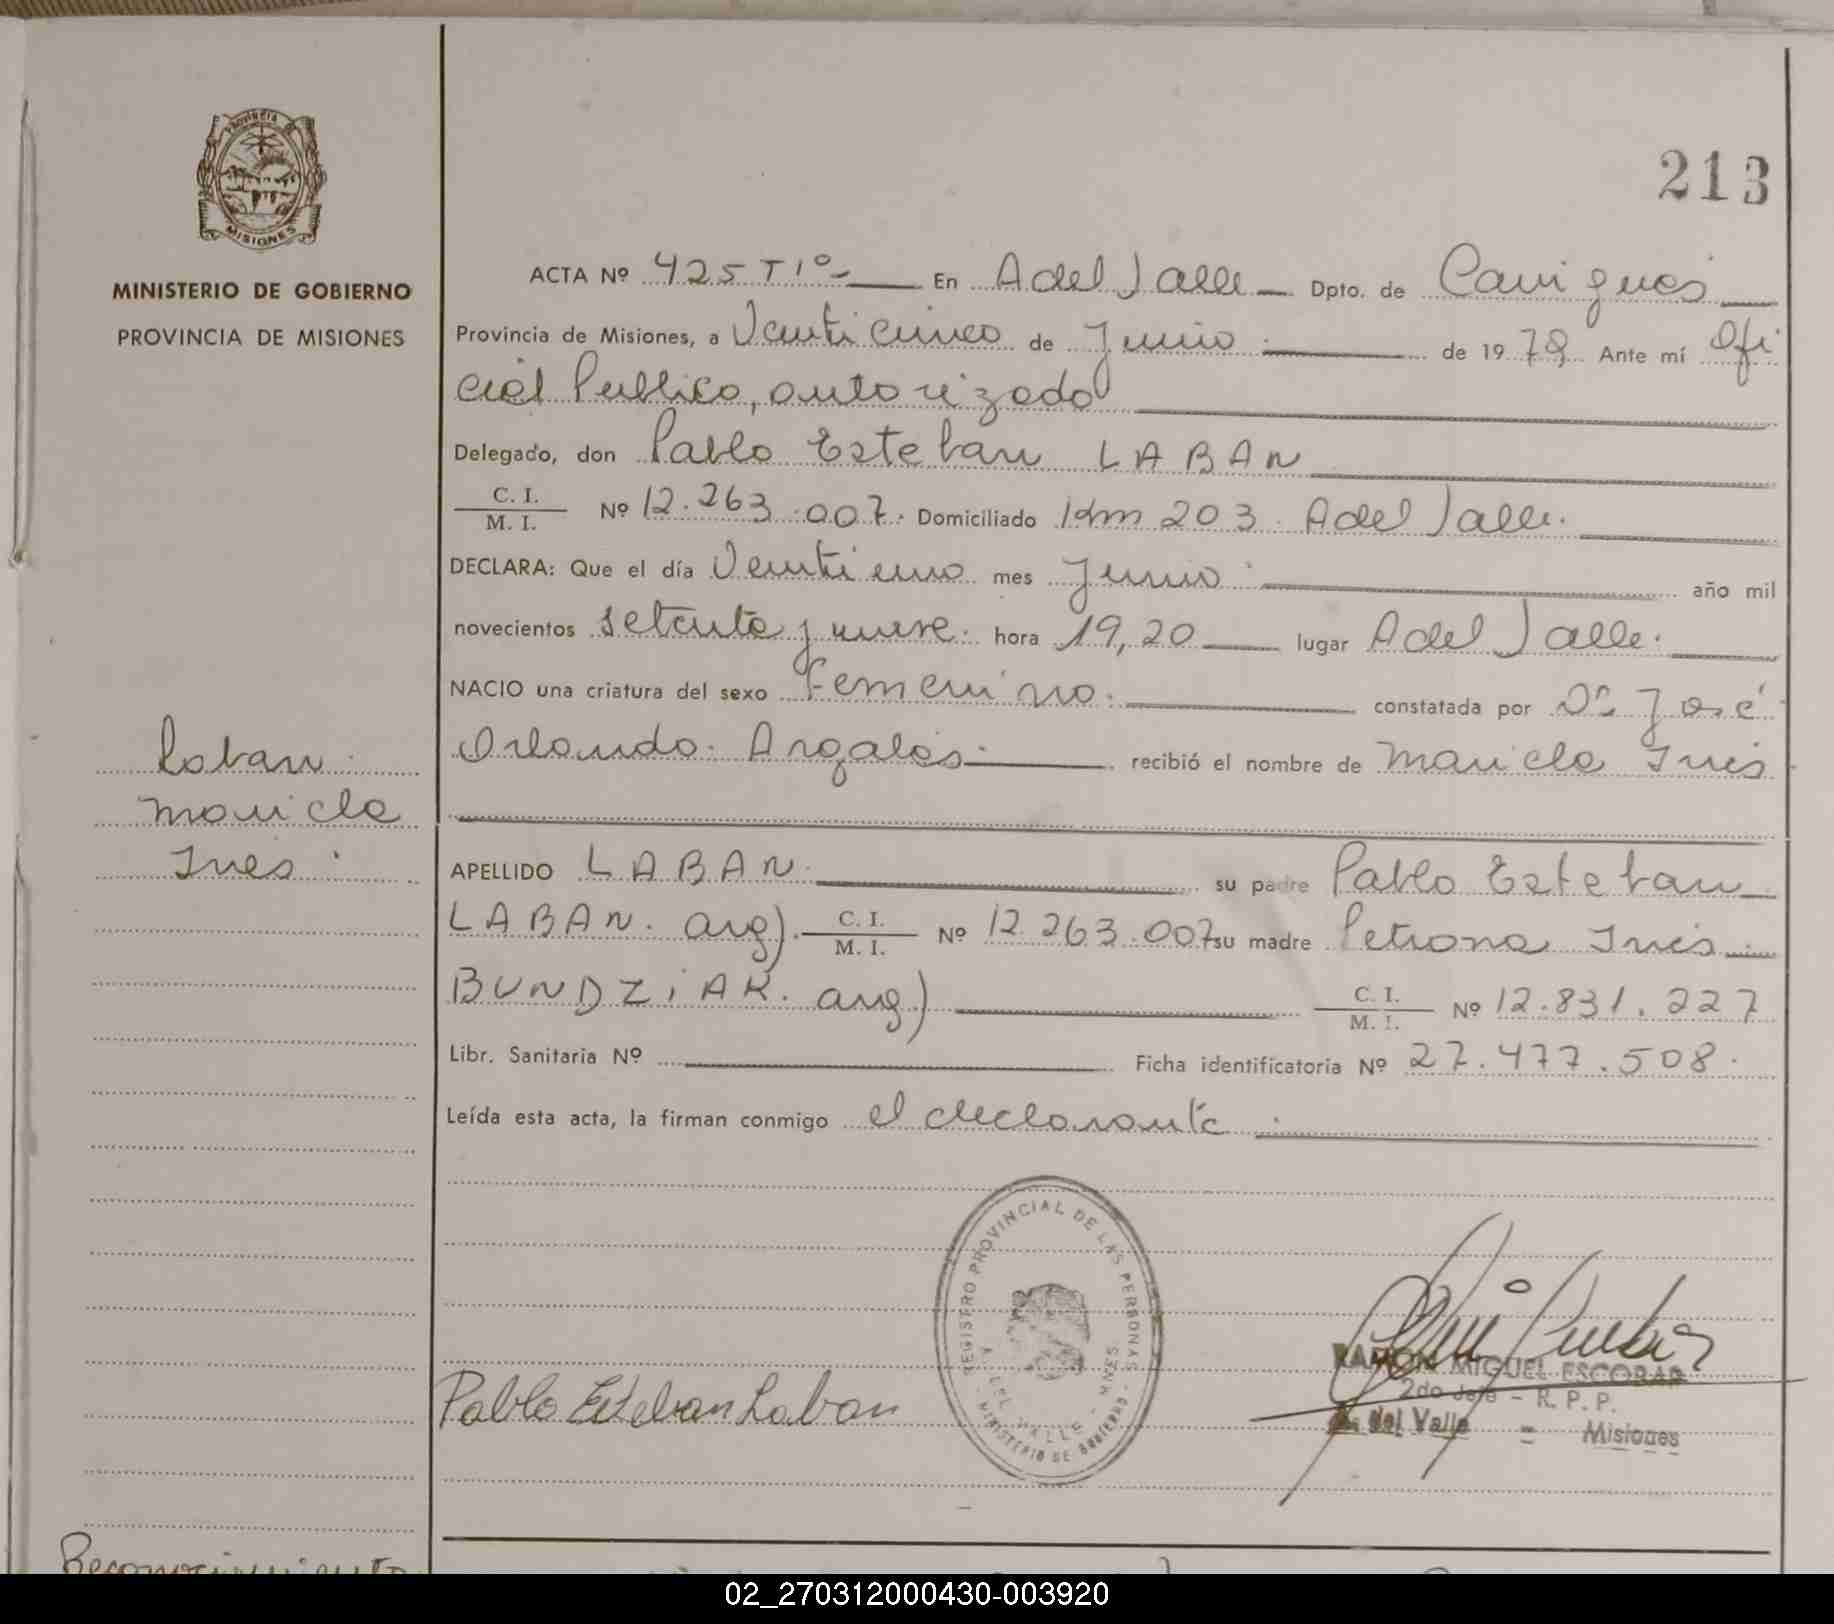 PROVINCIA DE
MISIONES
MINISTERIO DE GOBIERNO
PROVINCIA DE MISIONES
213
ACTA Nº 425 T 1º- En A del Valle Dpto. de Cainguás
Provincia de Misiones, a Veinti cinco de Junio de 1979 Ante mí Ofi
cial Publico, autorizado
Delegado, don Pablo Esteban LABAN
C. I.
M. I. Nº 12.263.007. Domiciliado Km 203. A del Valle.
DECLARA: Que el día Veintiuno mes Junio año mil
novecientos setenta y nueve. hora 19,20 lugar A del Valle.
NACIO una criatura del sexo Femenino. constatada por Dr. José
Orlando. Argalas recibió el nombre de Mariela Inés
Laban
Mariela
Inés
APELLIDO LABAN. su padre Pablo Esteban
LABAN. arg). C. I.
M. I. Nº 12.263.007 su madre Petrona Inés
BUNDZiAK. arg) C. I.
M. I. Nº 12.831.227
Libr. Sanitaria Nº Ficha identificatoria Nº 27.477.508.
Leída esta acta, la firman conmigo el declarante
REGISTRO PROVINCIAL DE LAS PERSONAS
A. DEL VALLE - MNES.
MINISTERIO DE GOBIERNO
Pablo Esteban Laban
RAMON MIGUEL ESCOBAR
2do Jefe - R. P. P.
A. del Valle = Misiones
Reconocimiento
02_270312000430-003920